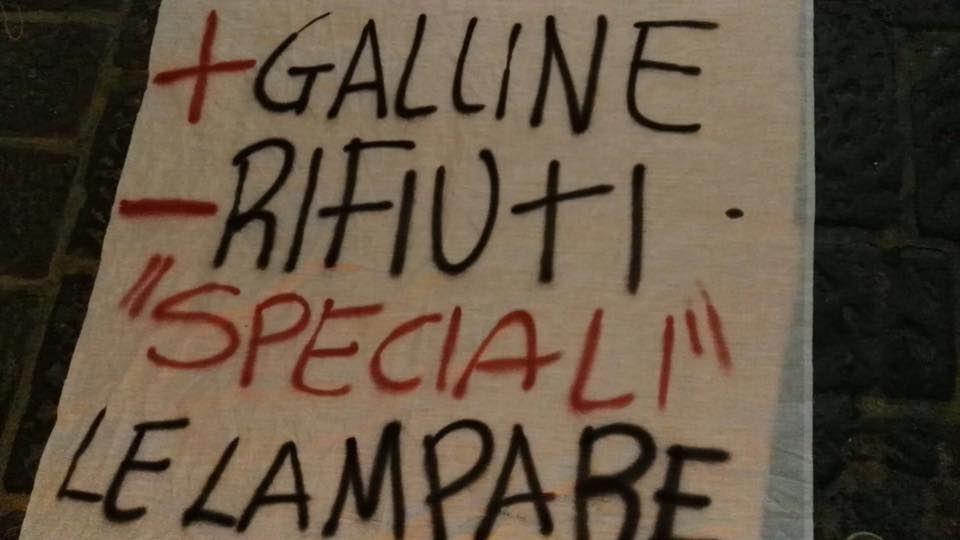 + GALLINE
- RIFIUTI
"SPECIALI"
LE LAMPARE